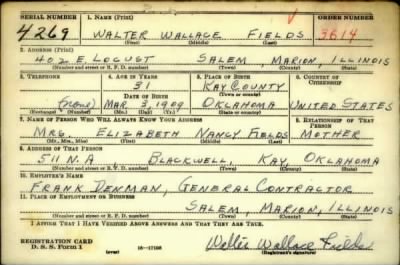 SERIAL NUMBER 1. NAME (Print) ORDER NUMBER
4269 WALTER WALLACE FIELDS 3614
(First) (Middle) (Last)
2. ADDRESS (Print)
402 E. LOCUST SALEM, MARION, ILLINOIS
(Number and street or R. F. D. number) (Town) (County) (State)
3. TELEPHONE 4. AGE IN YEARS 5. PLACE OF BIRTH 6. COUNTRY OF CITIZENSHIP
31 KAY COUNTY
DATE OF BIRTH (Town or county)
(NONE) MAR 3, 1909 OKLAHOMA UNITED STATES
(Exchange) (Number) (Mo.) (Day) (Yr.) (State or country)
7. NAME OF PERSON WHO WILL ALWAYS KNOW YOUR ADDRESS 8. RELATIONSHIP OF THAT PERSON
MRS. ELIZABETH NANCY FIELDS MOTHER
(Mr., Mrs., Miss) (First) (Middle) (Last)
9. ADDRESS OF THAT PERSON
511 N. A BLACKWELL, KAY, OKLAHOMA
(Number and street or R. F. D. number) (Town) (County) (State)
10. EMPLOYER'S NAME
FRANK DENMAN, GENERAL CONTRACTOR
11. PLACE OF EMPLOYMENT OR BUSINESS
SALEM, MARION, ILLINOIS
(Number and street or R. F. D. number) (Town) (County) (State)
I AFFIRM THAT I HAVE VERIFIED ABOVE ANSWERS AND THAT THEY ARE TRUE.
REGISTRATION CARD
D. S. S. Form 1 (over) 16—17105 Wallace Fields
(Registrant's signature)